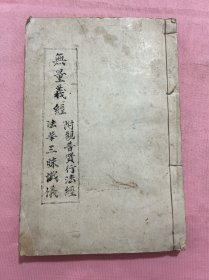 無量義經
附觀普賢行法經
法華三昧懺儀